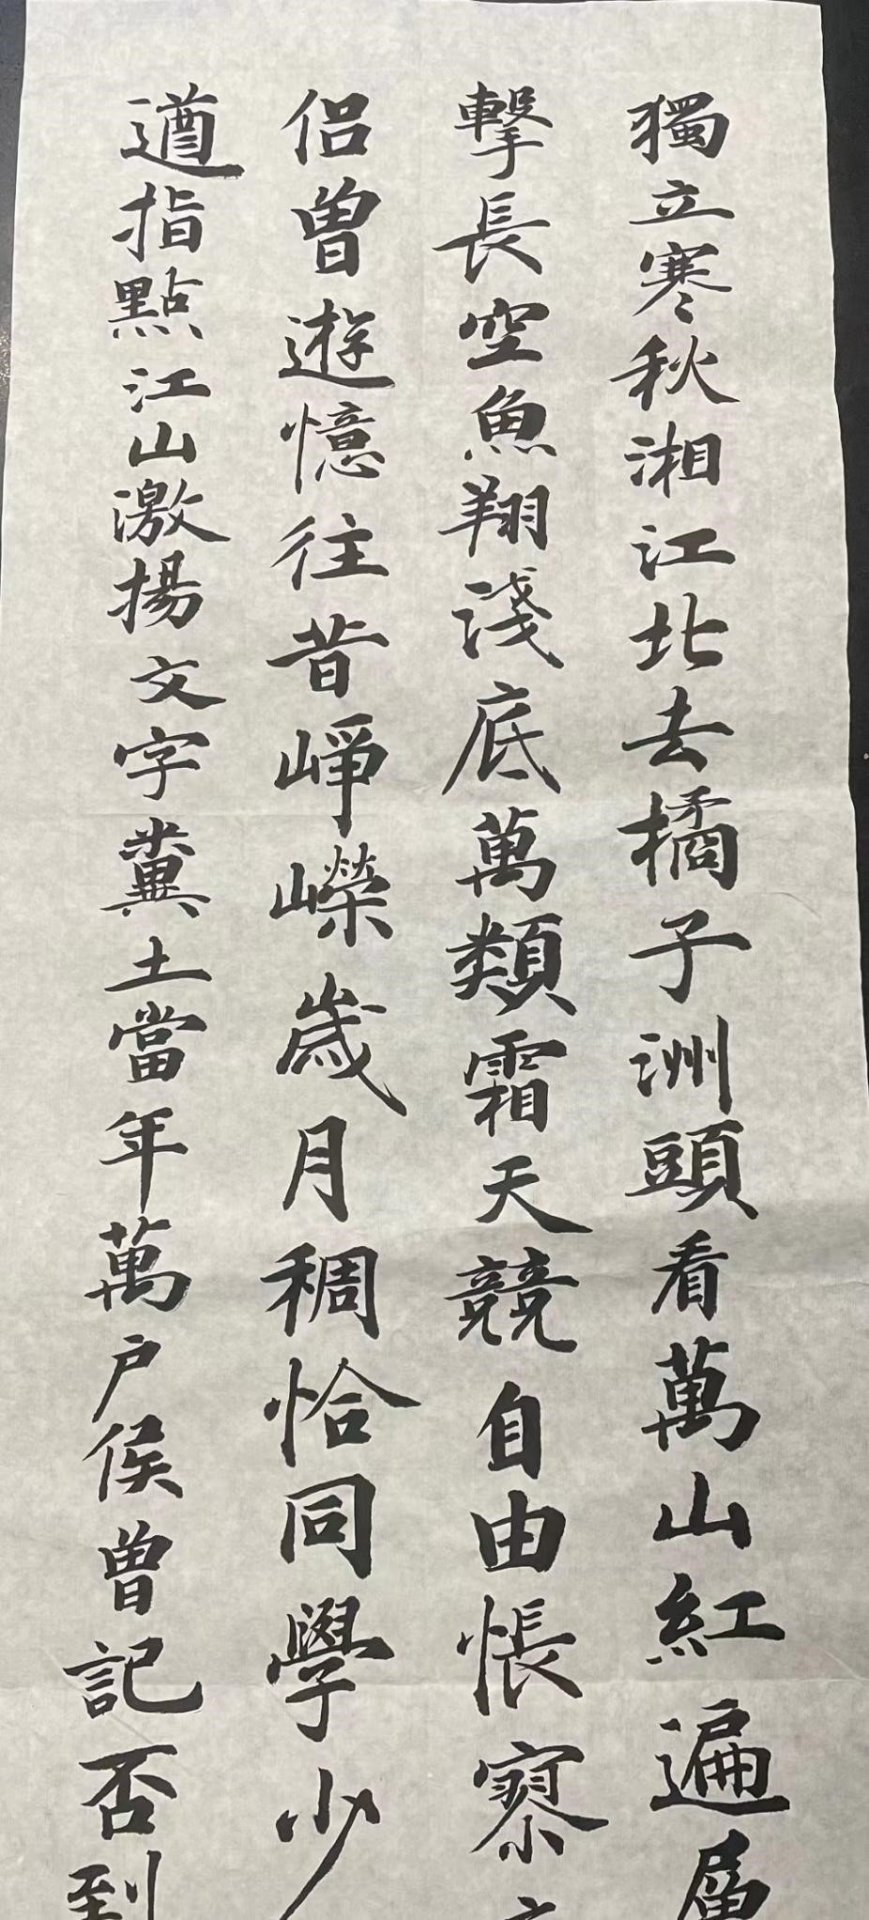 獨立寒秋湘江北去橘子洲頭看萬山紅遍
擊長空魚翔淺底萬類霜天競自由悵寥
侶曾遊憶往昔崢嶸歲月稠恰同學少
遒指點江山激揚文字糞土當年萬户侯曾記否到